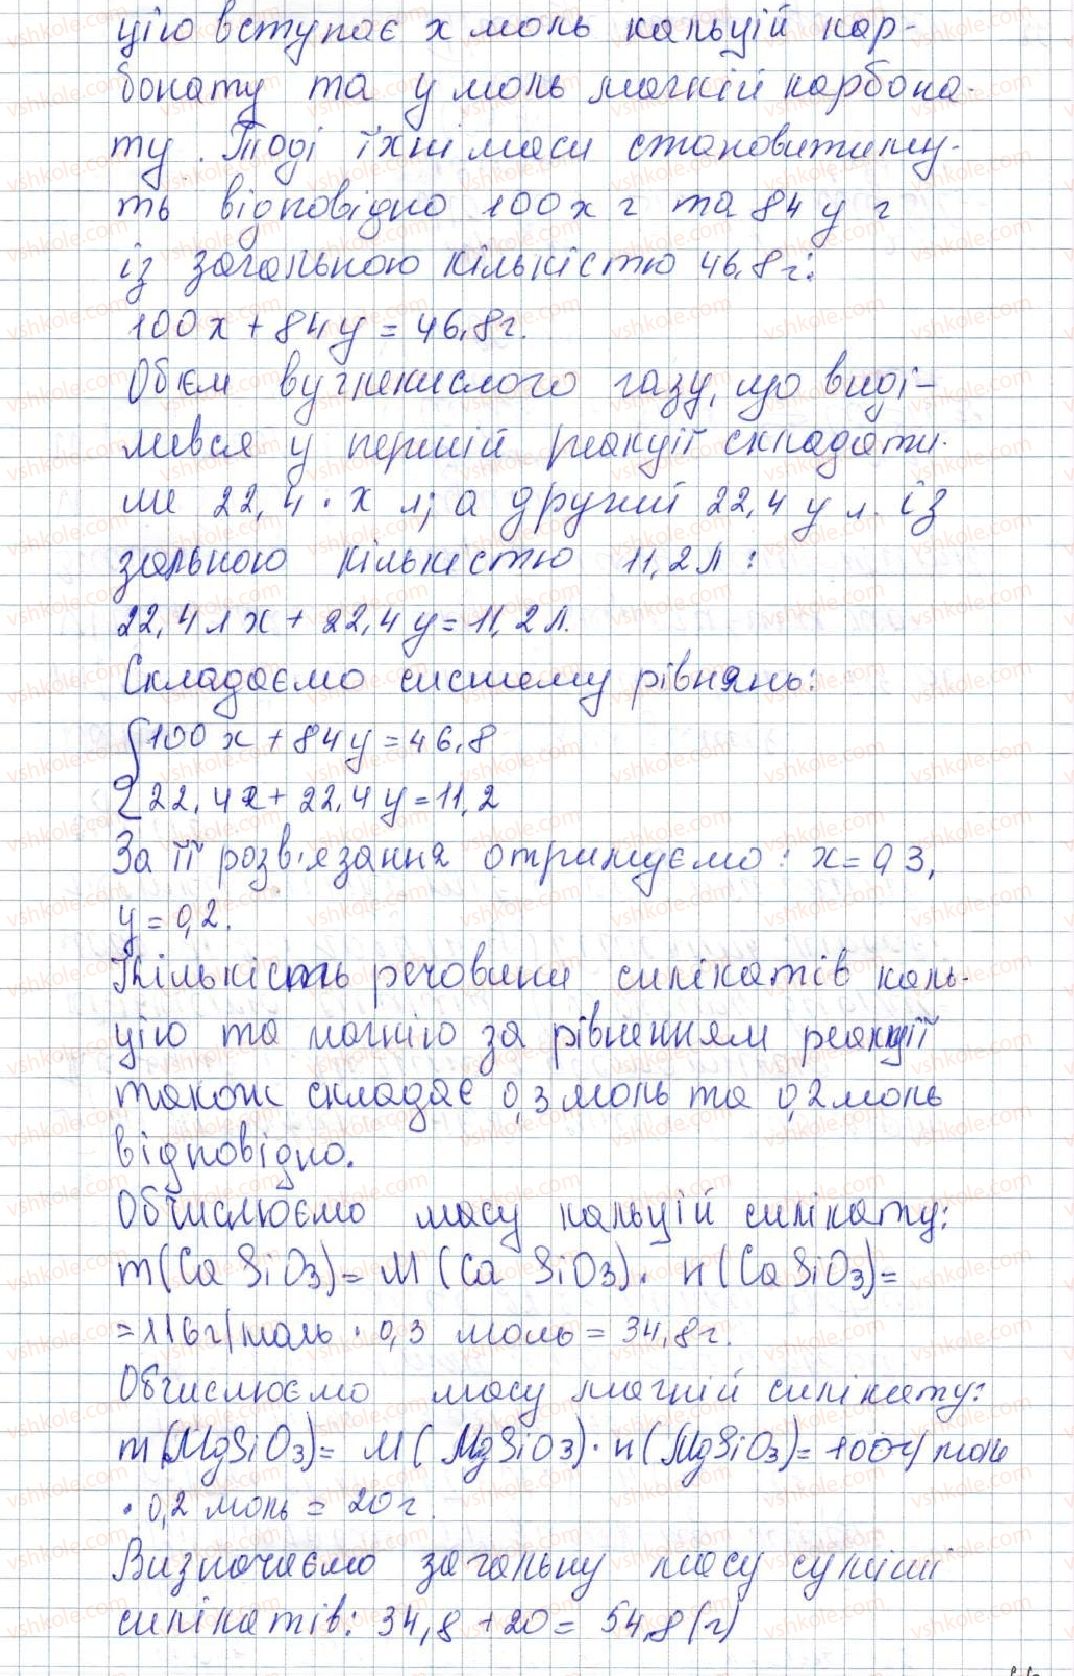 цію вступає x моль кальцій кар-
бонату та y моль магній карбона-
ту. Тоді їхні маси становитиму-
ть відповідно 100x г та 84y г
із загальною кількістю 46,8г:
100x + 84y = 46,8г.
Обєм вуглекислого газу, що виді-
лився у першій реакції складати-
ме 22,4 · x л; а другий 22,4 y л. із
зальною кількістю 11,2л:
22,4л x + 22,4 y = 11,2л.
Складаємо систему рівнянь:
{100x + 84y = 46,8
22,4x + 22,4y = 11,2
За її розв'язання отримуємо: x = 0,3,
y = 0,2.
Кількість речовини силікатів каль-
цію та магнію за рівненням реакції
також складає 0,3 моль та 0,2 моль
відповідно.
Обчислюємо масу кальцій силікату:
m(CaSiO3) = M(CaSiO3) · n(CaSiO3) =
= 116г/моль · 0,3 моль = 34,8г.
Обчислюємо масу магній силікату:
m(MgSiO3) = M(MgSiO3) · n(MgSiO3) = 100г/моль
· 0,2 моль = 20г.
Визначаємо загальну масу суміші
силікатів: 34,8 + 20 = 54,8(г)